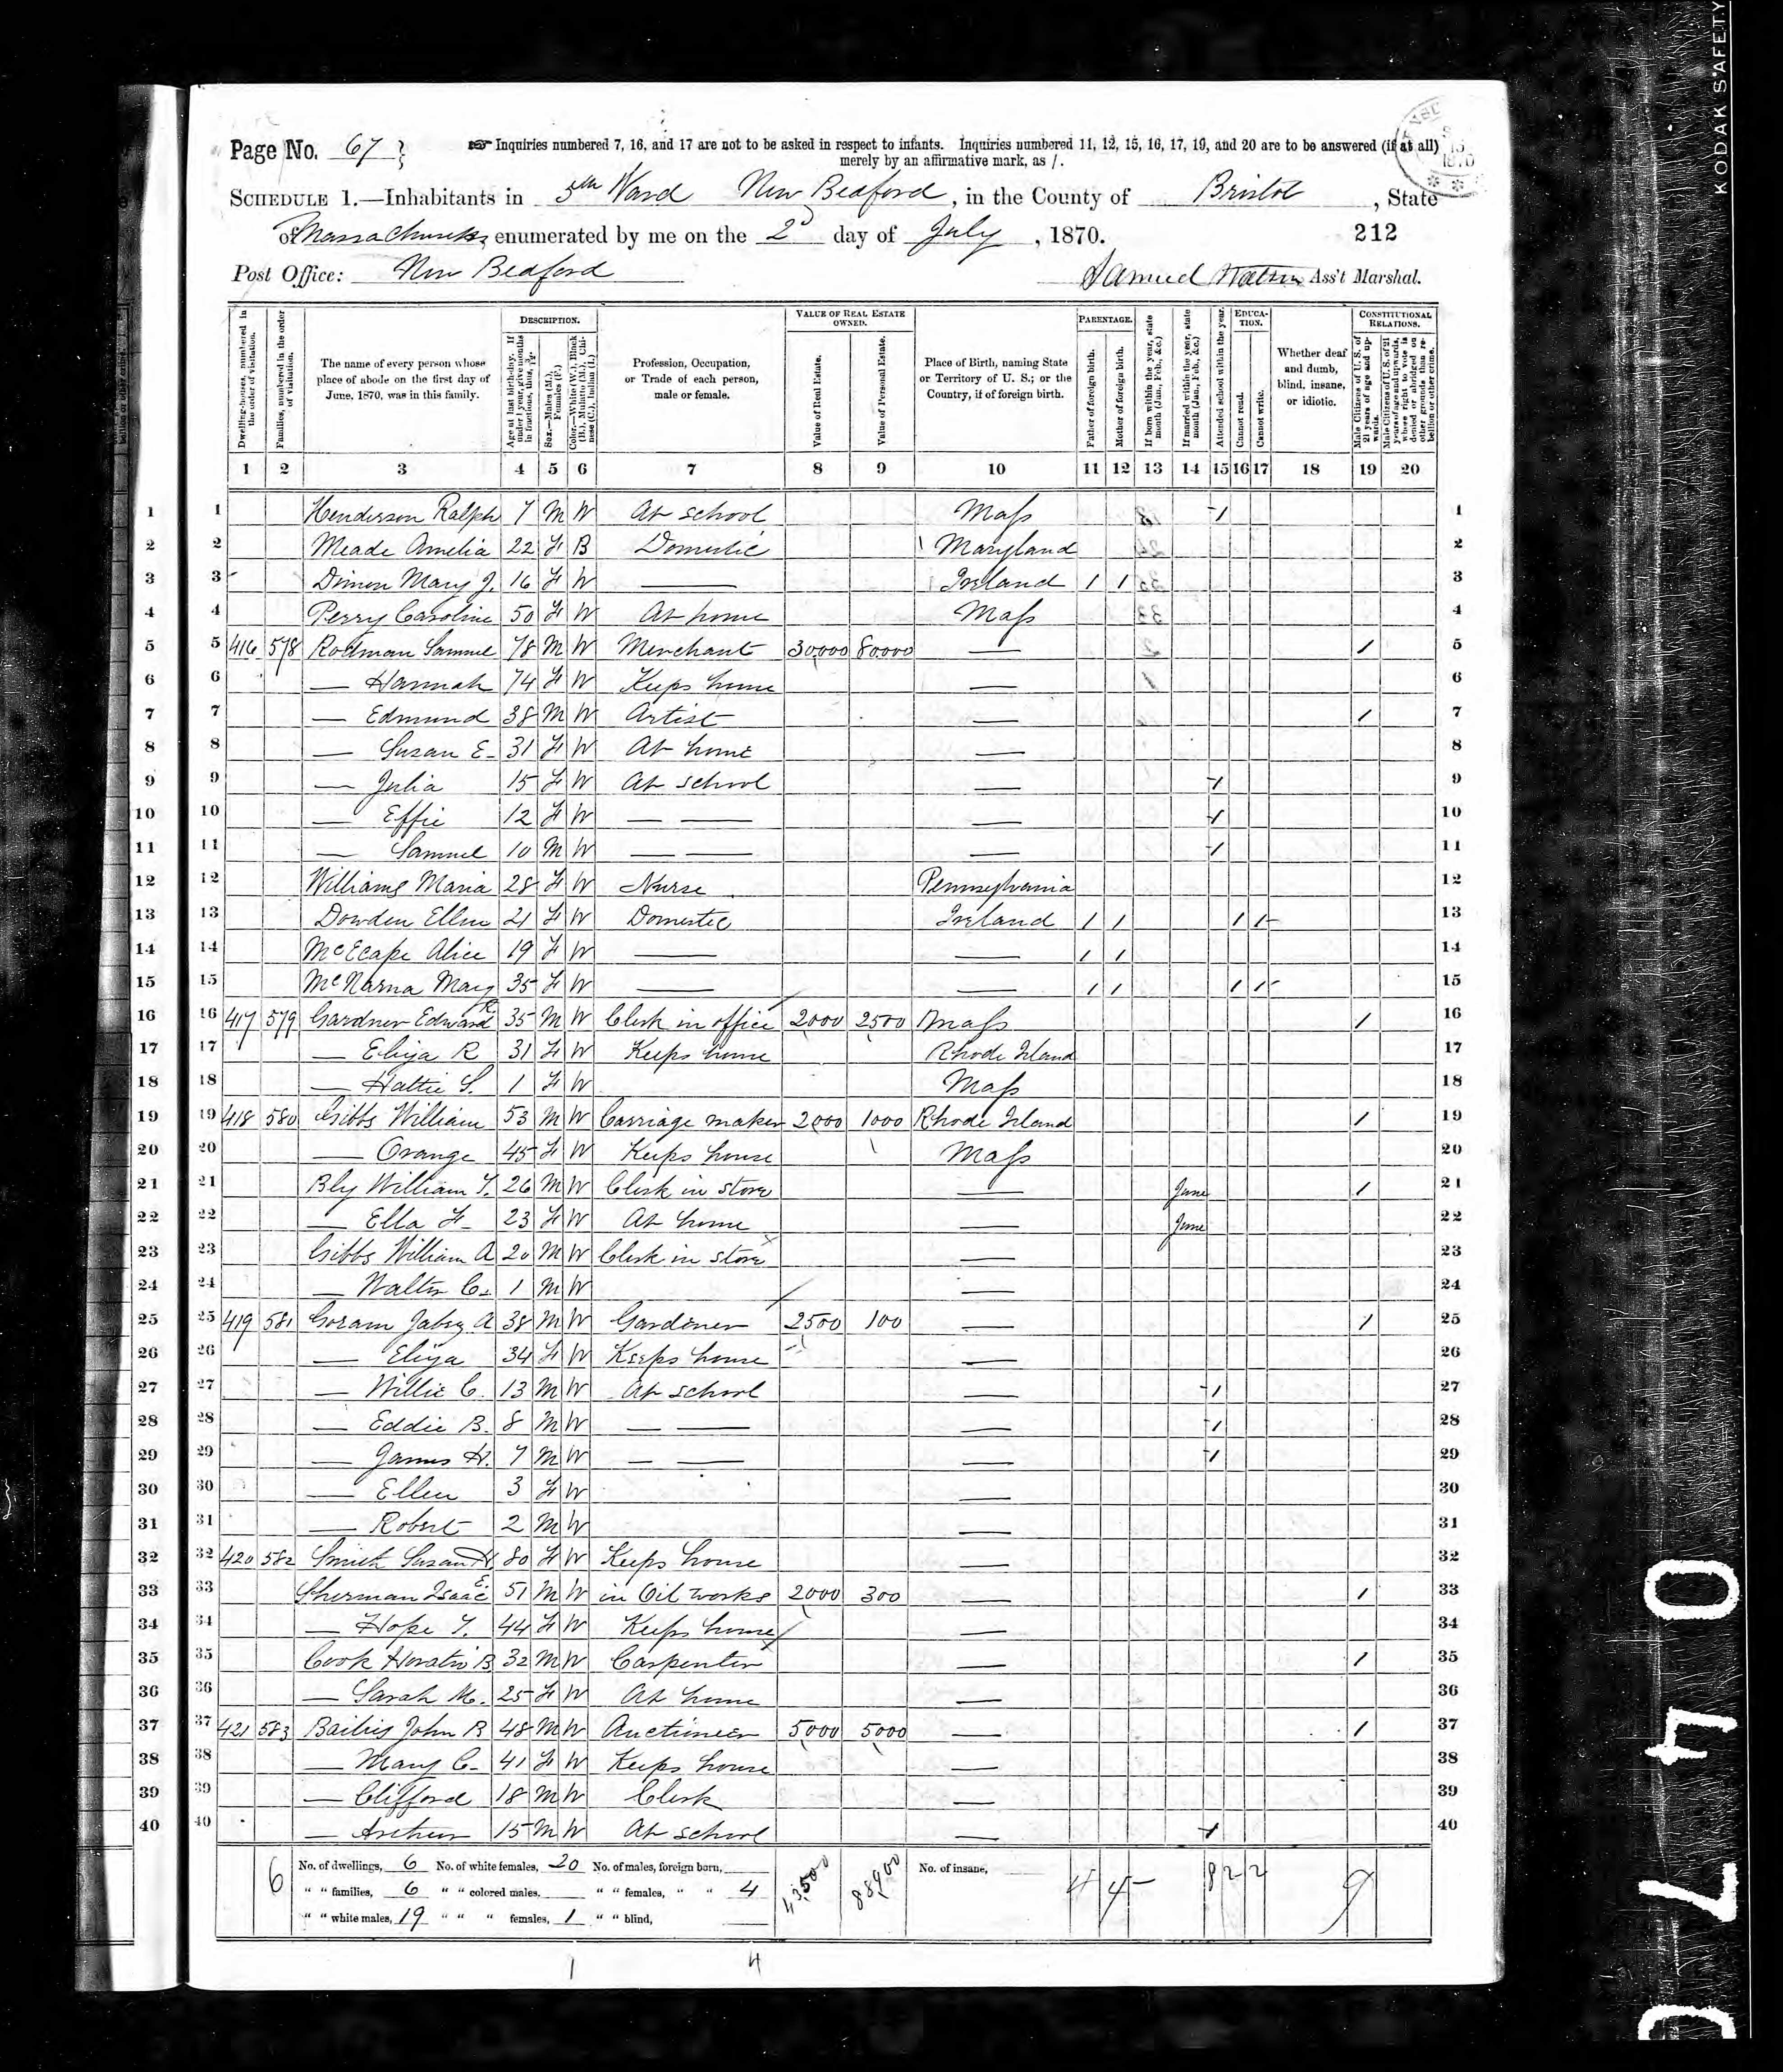 KODAK SAFETY
Page No. 67
Inquiries numbered 7, 16, and 17 are not to be asked in respect to infants. Inquiries numbered 11, 12, 15, 16, 17, 19, and 20 are to be answered (if at all)
merely by an affirmative mark, as /.
SCHEDULE 1.—Inhabitants in 5th Ward New Bedford, in the County of Bristol, State
of Massachusetts, enumerated by me on the 2d day of July, 1870.
212
Post Office: New Bedford
Samuel Watson Ass't Marshal.
DESCRIPTION. VALUE OF REAL ESTATE OWNED. PARENTAGE. EDUCATION. CONSTITUTIONAL RELATIONS.
Dwelling-houses, numbered in the order of visitation.
Families, numbered in the order of visitation.
The name of every person whose place of abode on the first day of June, 1870, was in this family.
Age at last birth-day. If under 1 year, give months in fractions, thus, 3/12.
Sex.—Males (M.), Females (F.)
Color.—White (W.), Black (B.), Mulatto (M.), Chinese (C.), Indian (I.)
Profession, Occupation, or Trade of each person, male or female.
Value of Real Estate.
Value of Personal Estate.
Place of Birth, naming State or Territory of U. S.; or the Country, if of foreign birth.
Father of foreign birth.
Mother of foreign birth.
If born within the year, state month (Jan., Feb., &c.)
If married within the year, state month (Jan., Feb., &c.)
Attended school within the year.
Cannot read.
Cannot write.
Whether deaf and dumb, blind, insane, or idiotic.
Male Citizens of U. S. of 21 years of age and upwards.
Male Citizens of U. S. of 21 years of age and upwards, where right to vote is denied or abridged on other grounds than rebellion or other crime.
1 2 3 4 5 6 7 8 9 10 11 12 13 14 15 16 17 18 19 20
1 1 Henderson Ralph 7 M W At school Mass / 1
2 2 Meade Amelia 22 F B Domestic Maryland 2
3 3 Dimon Mary J. 16 F W — Ireland / / 3
4 4 Perry Caroline 50 F W At home Mass 4
5 5 416 578 Rodman Samuel 78 M W Merchant 30000 80000 — / 5
6 6 — Hannah 74 F W Keeps home — 6
7 7 — Edmund 38 M W Artist — / 7
8 8 — Susan E. 31 F W At home — 8
9 9 — Julia 15 F W At school — / 9
10 10 — Effie 12 F W — — — / 10
11 11 — Samuel 10 M W — — — / 11
12 12 Williams Maria 28 F W Nurse Pennsylvania 12
13 13 Dowden Ellen 21 F W Domestic Ireland / / / / 13
14 14 McEcape Alice 19 F W — — / / 14
15 15 McNarna Mary 35 F W — — / / / / 15
16 16 417 579 Gardner Edward R 35 M W Clerk in office 2000 2500 Mass / 16
17 17 — Eliza R 31 F W Keeps home Rhode Island 17
18 18 — Hattie S. 1 F W Mass 18
19 19 418 580 Gibbs William 53 M W Carriage maker 2000 1000 Rhode Island / 19
20 20 — Orange 45 F W Keeps house Mass 20
21 21 Bly William T. 26 M W Clerk in store — June / 21
22 22 — Ella F. 23 F W At home — June 22
23 23 Gibbs William A 20 M W Clerk in store — 23
24 24 — Walter C. 1 M W — 24
25 25 419 581 Goram Jabez A 38 M W Gardener 2500 100 — / 25
26 26 — Eliza 34 F W Keeps house — 26
27 27 — Willie C. 13 M W At school — / 27
28 28 — Eddie B. 8 M W — — — / 28
29 29 — James H. 7 M W — — — / 29
30 30 — Ellen 3 F W — 30
31 31 — Robert 2 M W — 31
32 32 420 582 Smith Susan H 80 F W Keeps house 32
33 33 Sherman Isaac E. 51 M W in Oil works 2000 300 — / 33
34 34 — Hope T. 44 F W Keeps house — 34
35 35 Cook Horatio B 32 M W Carpenter — / 35
36 36 — Sarah M. 25 F W At home — 36
37 37 421 583 Bailies John B 48 M W Auctioneer 5000 5000 — / 37
38 38 — Mary C. 41 F W Keeps house — 38
39 39 — Clifford 18 M W Clerk — 39
40 40 — Arthur 15 M W At school — / 40
6 No. of dwellings, 6 No. of white females, 20 No. of males, foreign born, 43,500 88,900 No. of insane, 4 4 8 2 2 9
" " families, 6 " " colored males, " " females, " " 4
" " white males, 19 " " " females, 1 " " blind,
1 4